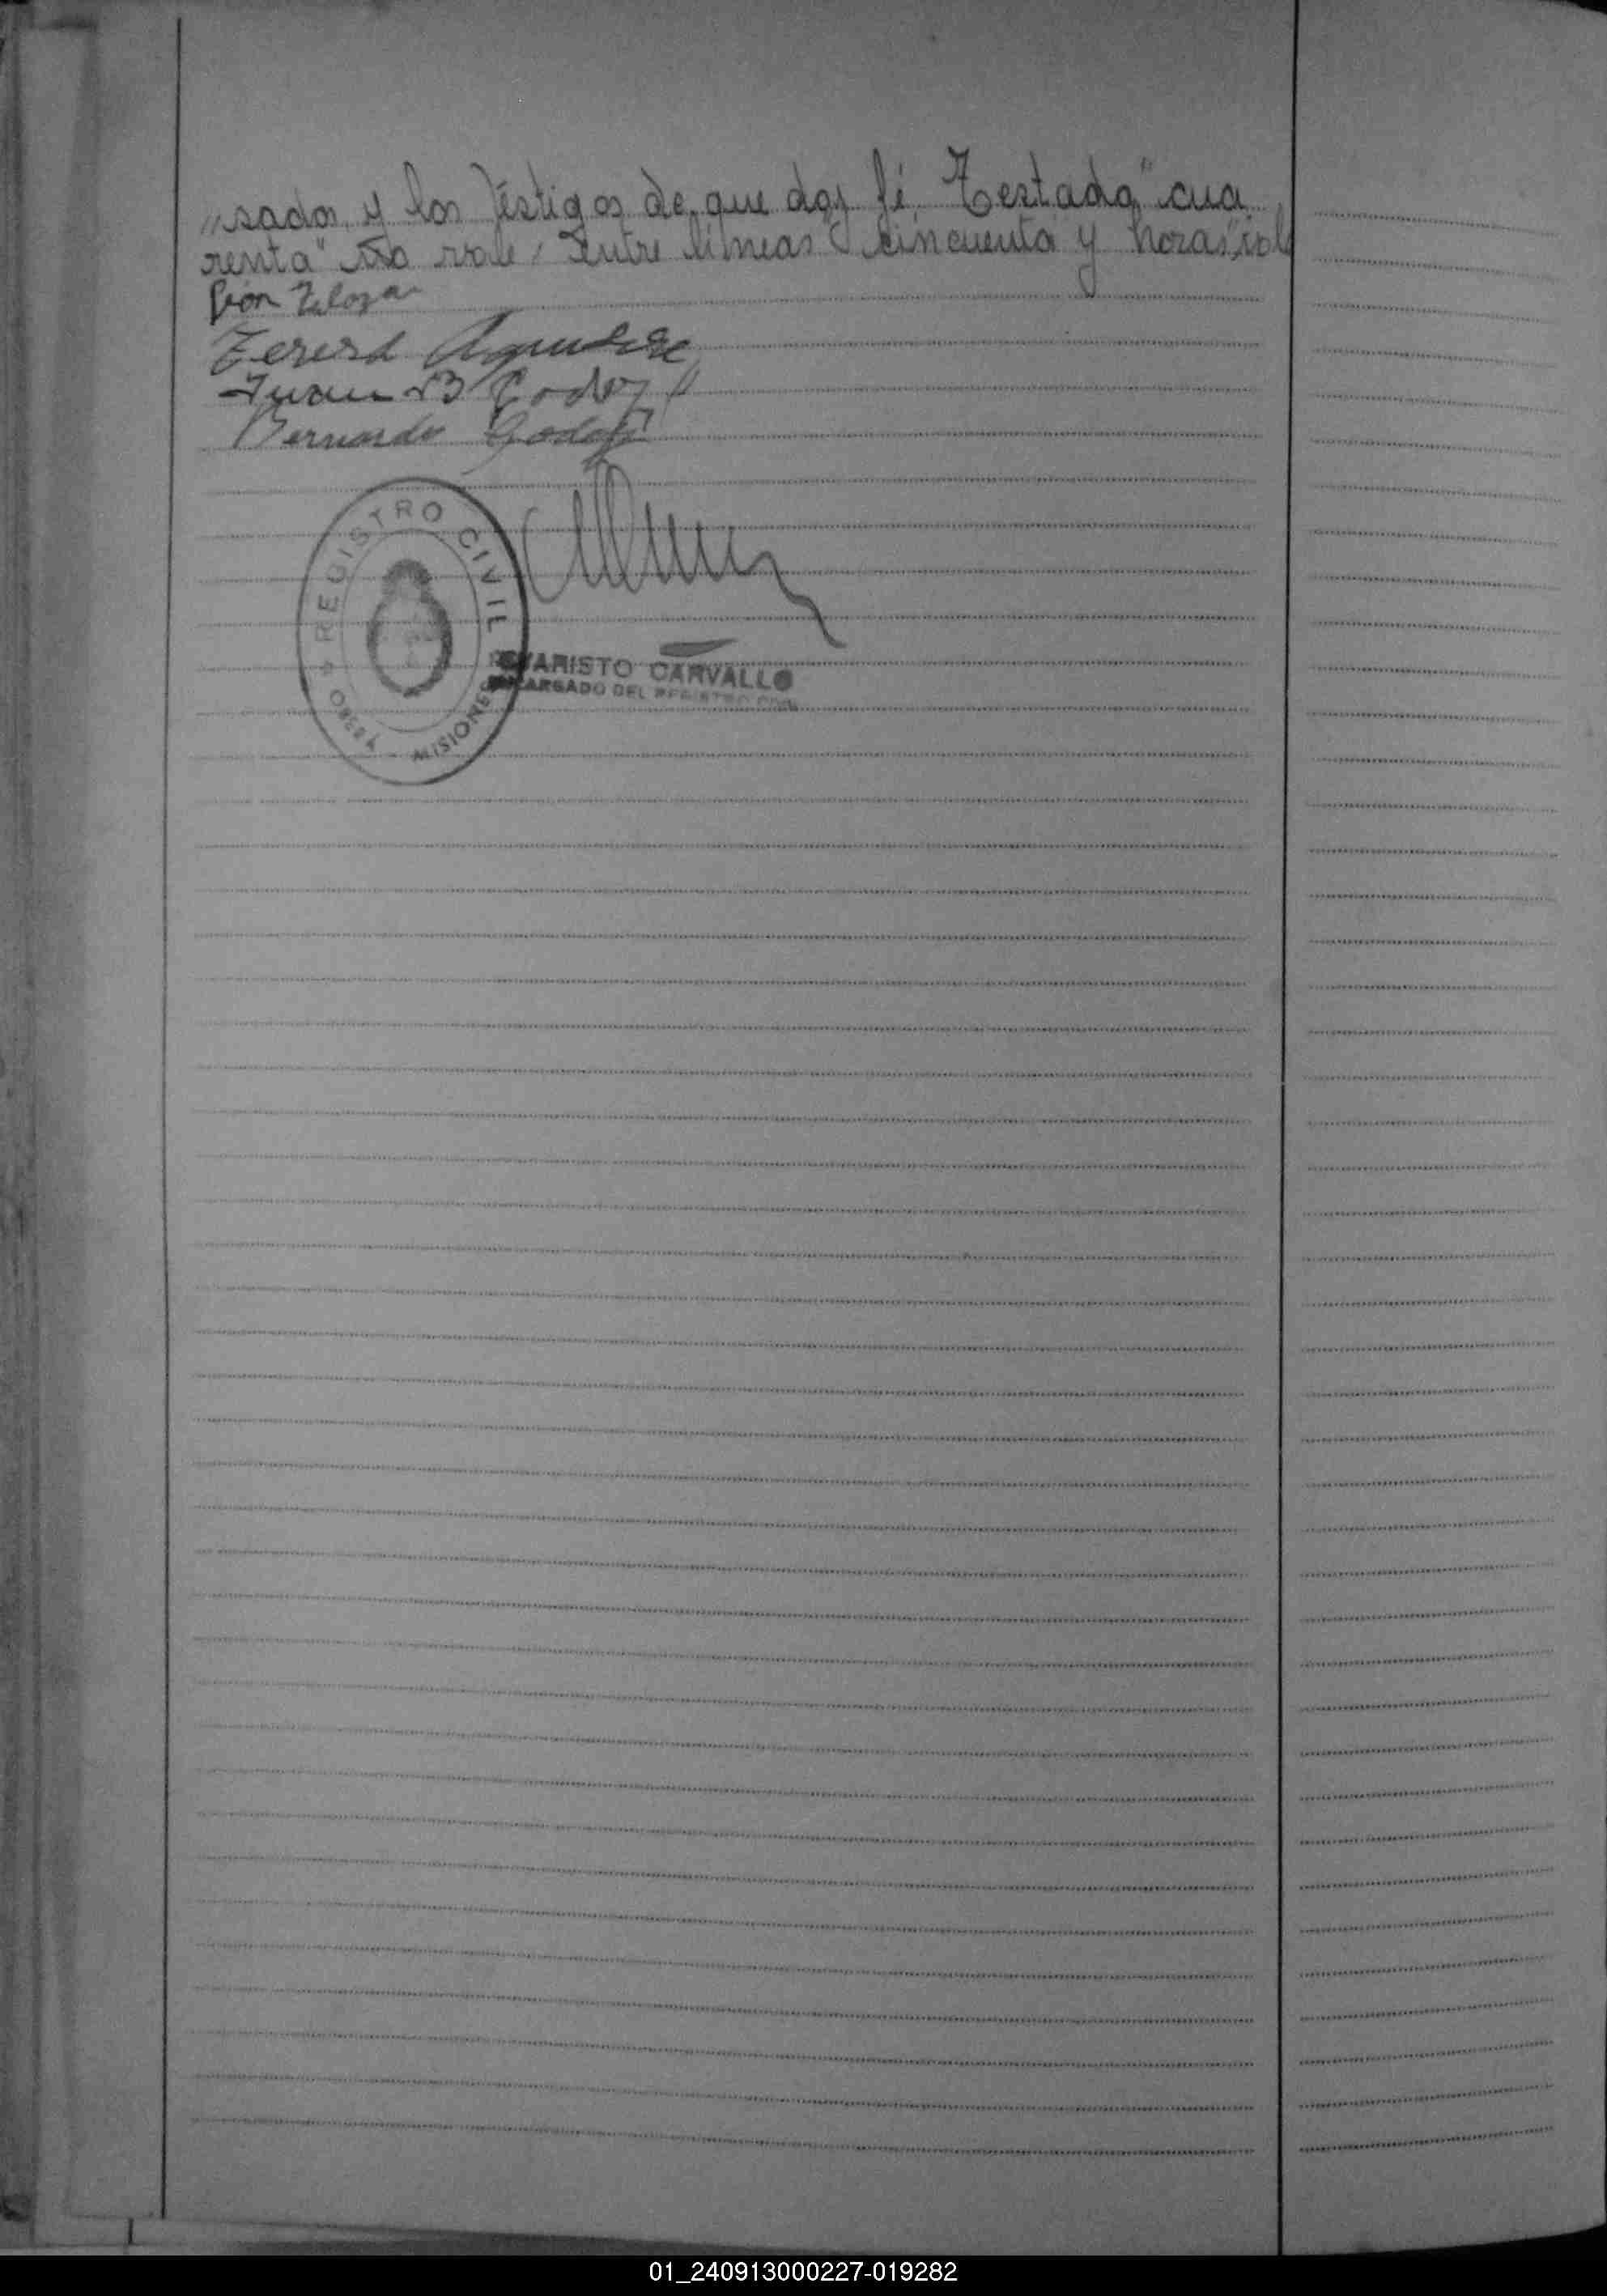 "sados y los téstigos de que doy fé. Testado "cua
renta" No vale, Entre líneas "cincuenta y horas", vale
León Zeloza
Teresa
Juan B Godoy
Bernardo Godoy
REGISTRO CIVIL
OBERÁ - MISIONES
EVARISTO CARVALLO
ENCARGADO DEL REGISTRO CIVIL
01_240913000227-019282